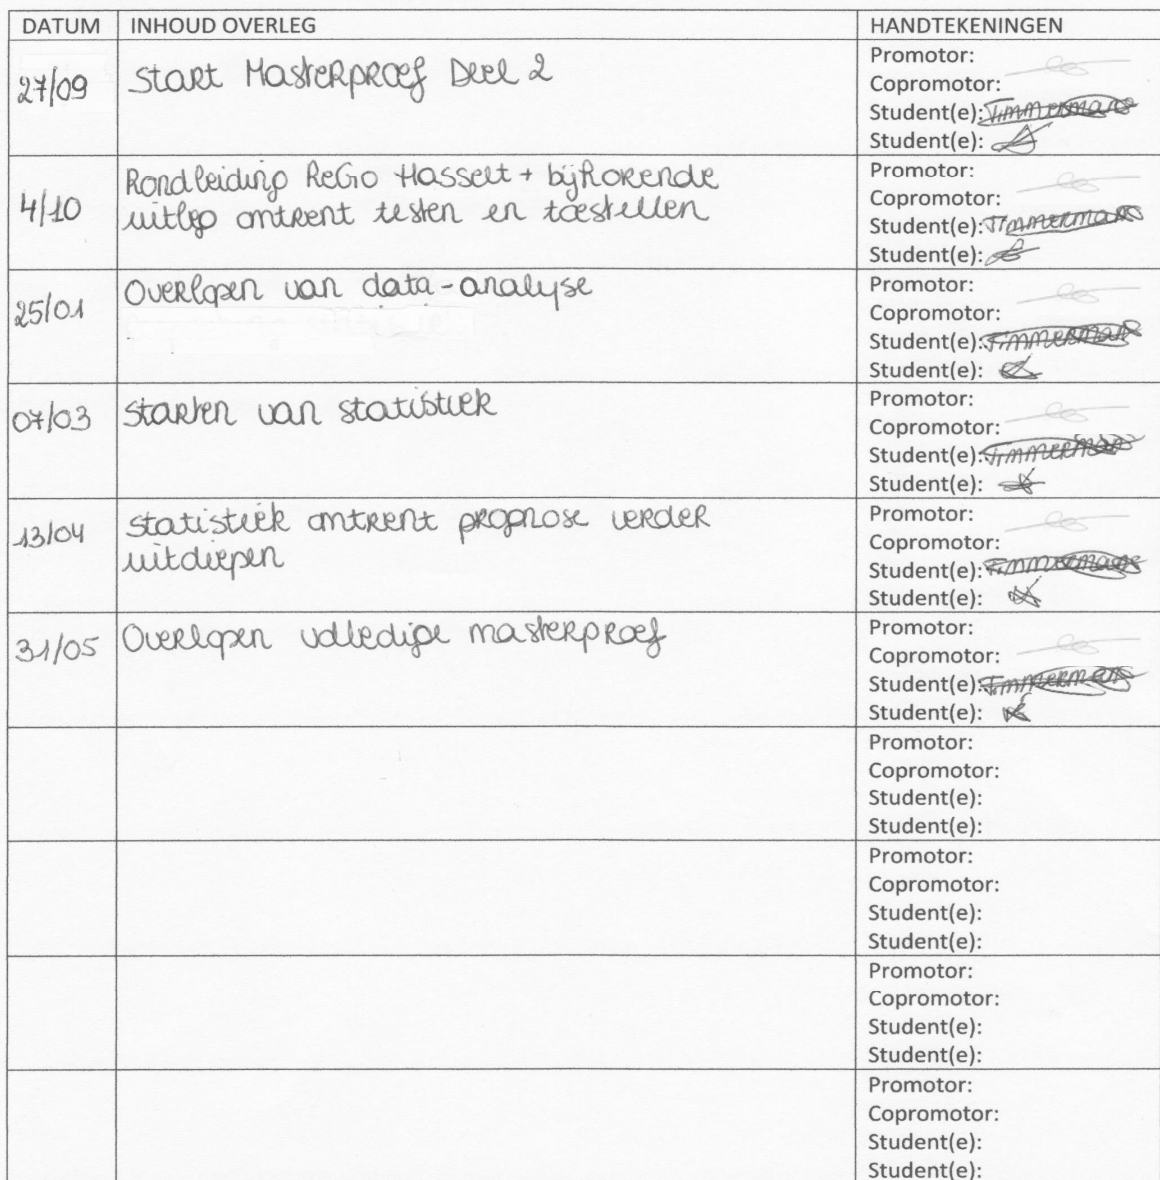 DATUM INHOUD OVERLEG HANDTEKENINGEN
27/09 Start Masterproef Deel 2
Promotor:
Copromotor:
Student(e): Timmermans
Student(e):
4/10 Rondleiding ReGo Hasselt + bijhorende
uitleg omtrent testen en toestellen
Promotor:
Copromotor:
Student(e): Timmermans
Student(e):
25/01 Overlopen van data-analyse
Promotor:
Copromotor:
Student(e): Timmermans
Student(e):
07/03 Starten van statistiek
Promotor:
Copromotor:
Student(e): Timmermans
Student(e):
13/04 statistiek omtrent prognose verder
uitdiepen
Promotor:
Copromotor:
Student(e): Timmermans
Student(e):
31/05 Overlopen volledige masterproef
Promotor:
Copromotor:
Student(e): Timmermans
Student(e):
Promotor:
Copromotor:
Student(e):
Student(e):
Promotor:
Copromotor:
Student(e):
Student(e):
Promotor:
Copromotor:
Student(e):
Student(e):
Promotor:
Copromotor:
Student(e):
Student(e):